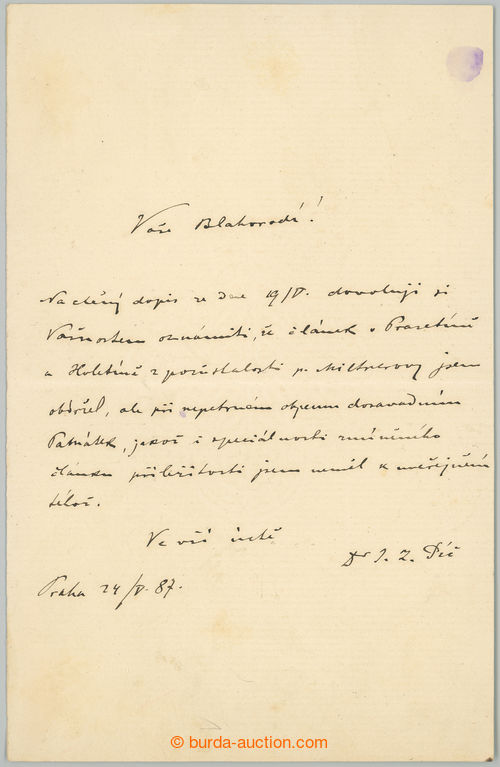 Vaše Blahorodí!
Na ctěný dopis ze dne 19/V. dovoluji si
Vašnostem oznámiti, že článek o Prasetíně
a Holetíně z pozůstalosti p. Miltnerovy jsem
obdržel, ale při nepatrném objemu dosavadním
Památek, jakož i speciálnosti zmíněného
článku příležitosti jsem neměl k uveřejnění
téhož.
Ve vší úctě
Dr J. L. Píč
Praha 24/V. 87.
© burda-auction.com